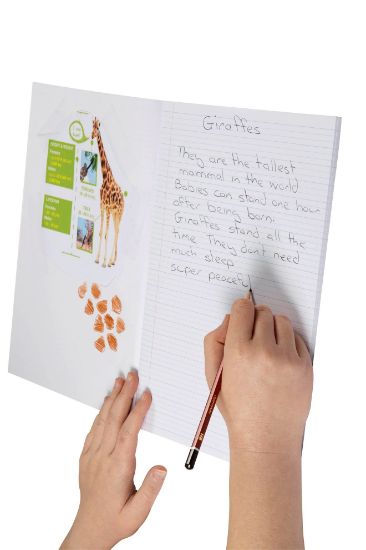 Giraffes
They are the tallest
mammal in the world
Babies can stand one hour
after being born.
Giraffes stand all the
time. They don't need
much sleep
super peaceful